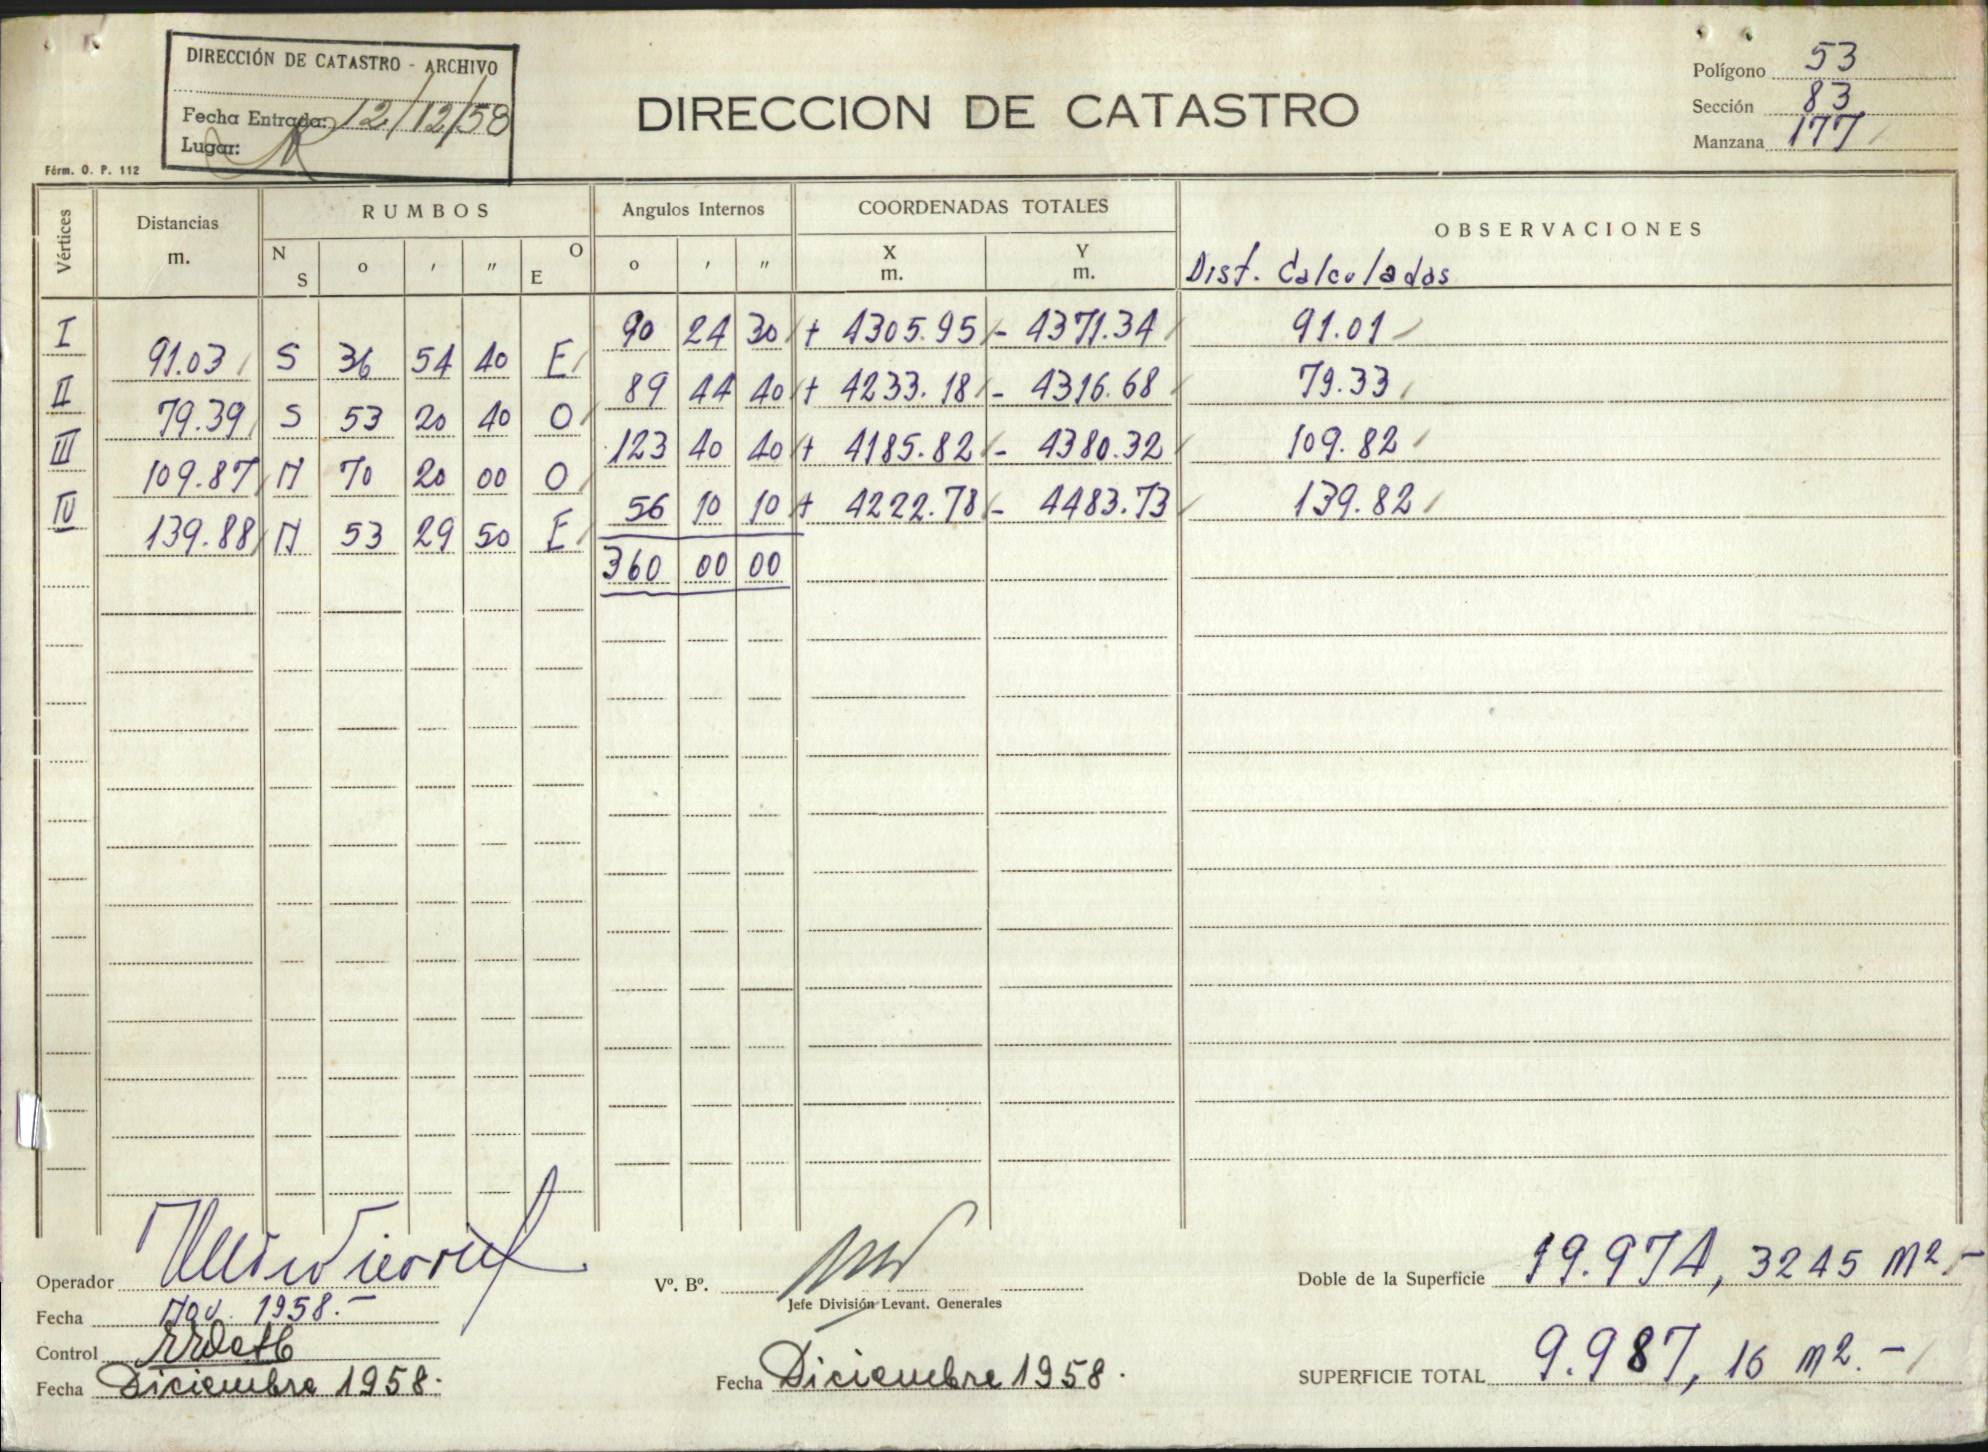 DIRECCIÓN DE CATASTRO - ARCHIVO
Fecha Entrada: 12/12/58
Lugar:
Férm. O. P. 112
DIRECCION DE CATASTRO
Polígono 53
Sección 83
Manzana 177
Vértices Distancias m. RUMBOS Angulos Internos COORDENADAS TOTALES OBSERVACIONES
N S o ' " E O o ' " X m. Y m. Dist. Calculadas
I 90 24 30 + 4305.95 - 4371.34 91.01
91.03 S 36 54 40 E
II 89 44 40 + 4233.18 - 4316.68 79.33
79.39 S 53 20 40 O
III 123 40 40 + 4185.82 - 4380.32 109.82
109.87 N 70 20 00 O
IV 56 10 10 + 4222.78 - 4483.73 139.82
139.88 N 53 29 50 E
360 00 00
Operador
Fecha Nov. 1958.-
Control
Fecha Diciembre 1958.
Vº. Bº.
Jefe División Levant. Generales
Fecha Diciembre 1958.
Doble de la Superficie 19.974, 3245 m2.-
SUPERFICIE TOTAL 9.987, 16 m2.-